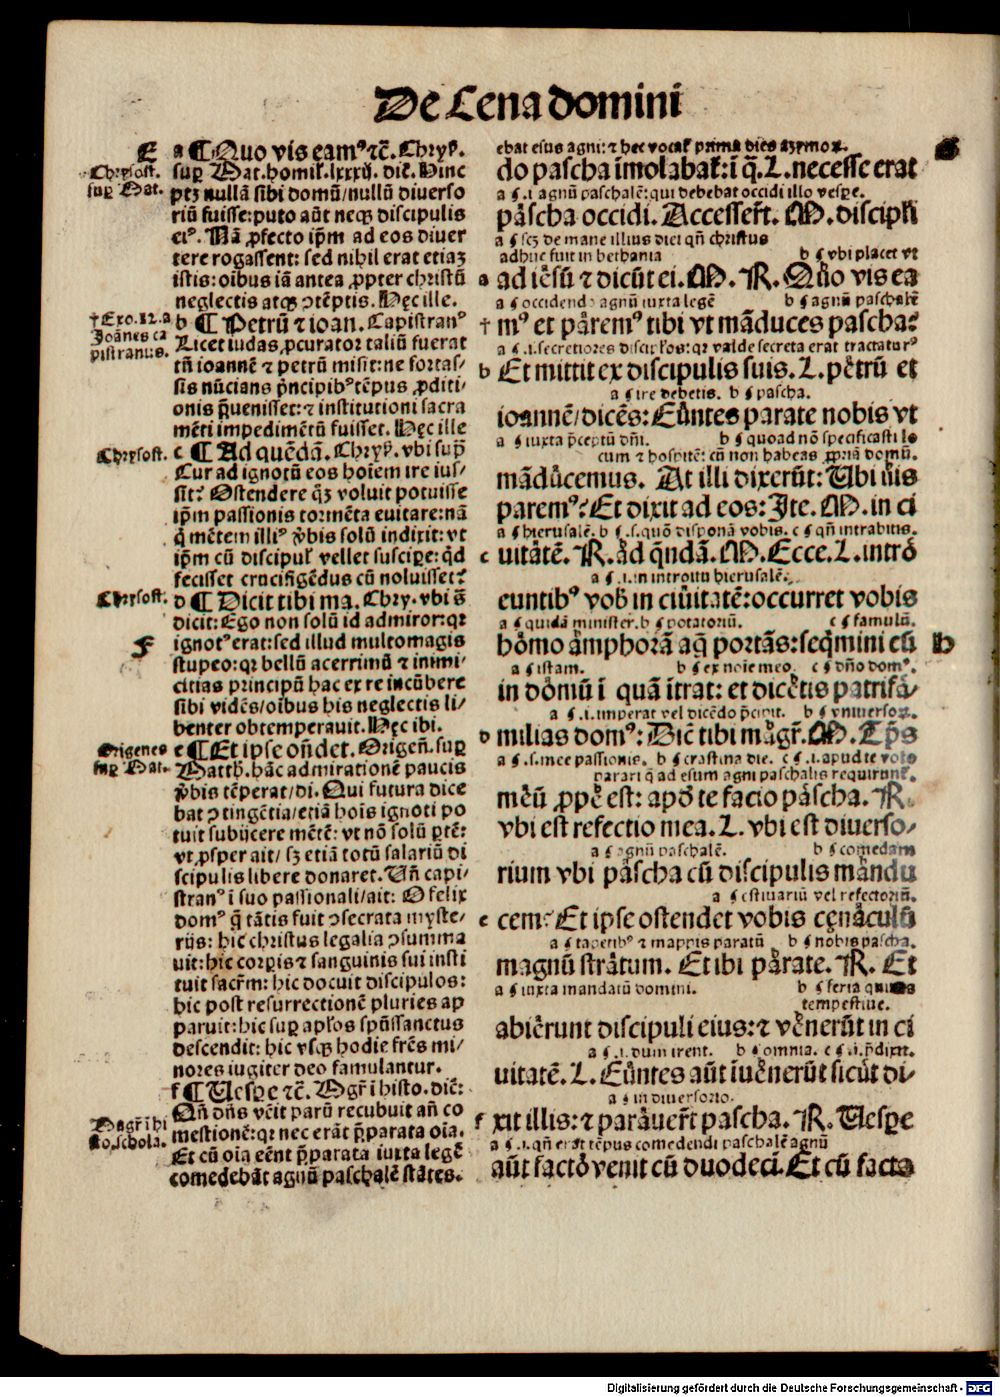 De Cena domini
E
a ¶ Quo vis eamꝰ ⁊c̃. Chryſ.
ſuꝑ Mat. homil. lxxxij. dic̃. Hinc
ptꝫ nullã ſibi domũ/nullũ diuerſo
riũ fuiſſe: puto aũt neqꝫ diſcipulis
eiꝰ. Nã ꝓfecto ip̃m ad eos diuer
tere rogaſſent: ſed nihil erat etiaꝫ
iſtis: oibus iã antea ꝓpter chriſtũ
neglectis atqꝫ ↄtẽptis. Hęc ille.
b ¶ Petrũ ⁊ ioan. Capiſtranꝰ
Licet iudas, ꝓcurator taliũ fuerat
tñ ioannẽ ⁊ petrũ miſit: ne fortaſ/
ſis nũcians p̃ncipibꝰ tẽpus ꝓditi/
onis p̃ueniſſet: ⁊ inſtitutioni ſacra
mẽti impedimẽtũ fuiſſet. Hęc ille
c ¶ Ad quẽdã. Chryſ. vbi ſup̃
Cur ad ignotũ eos hoiem ire iuſ/
ſit? Oſtendere q̃ꝫ voluit potuiſſe
ip̃m paſſionis tormẽta euitare: nã
q̃ mẽtem illiꝰ v̓bis ſolũ indixit: vt
ip̃m cũ diſcipul̓ vellet ſuſciꝑe: qd̃
feciſſet crucifigẽdus cũ noluiſſet?
d ¶ Dicit tibi ma. Chry. vbi s̃
dicit: Ego non ſolũ id admiror: qꝛ
ignotꝰ erat: ſed illud multomagis
ſtupeo: qꝛ bellũ acerrimũ ⁊ inimi/
citias principũ hac ex re incũbere
ſibi vidẽs/oibus his neglectis li/
benter obtemperauit. Hęc ibi.
e ¶ Et ipſe oñdet. Origeñ. ſuꝑ
Matth. hãc admirationẽ paucis
v̓bis tẽperat/dĩ. Qui futura dice
bat ↄtingẽtia/etiã hois ignoti po
tuit ſubijcere mẽtẽ: vt nõ ſolũ ꝑtẽ:
vt ꝓſper ait/ ſꝫ etiã totũ ſalariũ di
ſcipulis libere donaret. Uñ capi/
ſtranꝰ ĩ ſuo paſſionali/ait: O felix
domꝰ q̃ tãtis fuit ↄſecrata myſte/
rijs: hic chriſtus legalia ↄſumma
uit: hic corꝑis ⁊ ſanguinis ſui inſti
tuit ſacr̃m: hic docuit diſcipulos:
hic poſt reſurrectionẽ pluries ap
paruit: hic ſuꝑ apl̓os ſpũſſanctus
deſcendit: hic vſqꝫ hodie fr̃es mi/
nores iugiter deo famulantur.
f ¶ Ueſꝑe ⁊c̃. Mgr̃ ĩ hiſto. dic̃:
Qñ dñs vẽit parũ recubuit añ co
meſtionẽ: qꝛ nec erãt p̃parata oĩa.
Et cũ oĩa eẽnt p̃parata iuxta legẽ
comedebãt agnũ paſchalẽ ſtãtes.
Chryſoſt.
ſuꝑ Mat.
†Exo.12.a
Joãnes ca
piſtranus.
Chryſoſt.
Chryſoſt.
F
Origenes
ſuꝑ Mat.
Magr̃ ĩ hi
ſto. ſchola.
ebat eſus agni: ⁊ hec vocat̃ prima dies aʒymoꝝ.
do paſcha ĩmolabat̃: ĩ q̃. L. neceſſe erat
a ⸿ .i. agnũ paſchalẽ: qui debebat occidi illo veſꝑe.
pãſcha occidi. Acceſſer̃t. M. diſcipl̓i
a ⸿ ſcꝫ de mane illius diei qñ chriſtus
adhuc fuit in bethania b ⸿ vbi placet vt
a ad ieſũ ⁊ dicũt ei. M. R. Quo vis ea
a ⸿ occidendo agnũ iuxta legẽ b ⸿ agnũ paſchalẽ
† mꝰ et paremꝰ tibi vt mãduces paſcha?
a ⸿ .i. ſecretiores diſcipl̓os: qꝛ valde ſecreta erat tractaturꝰ
b Et mittit ex diſcipulis ſuis. L. petrũ et
a ⸿ ire debetis. b ⸿ paſcha.
ioannẽ/dicẽs: Eũntes parate nobis vt
a ⸿ iuxta p̃ceptũ dñi. b ⸿ quoad nõ ſpecificaſti lo
cum ⁊ hoſpitẽ: cũ non habeas ꝓpriã domũ.
mãducemus. At illi dixerũt: Ubi vis
paremꝰ? Et dixit ad eos: Ite. M. in ci
a ⸿ hieruſalẽ. b ⸿ .ſ. quõ diſponã vobis. c ⸿ qñ intrabitis.
c uitatẽ. R. ad q̃ndã. M. Ecce. L. intro
a ⸿ .i. in introitu hieruſalẽ.
euntibꝰ vob̓ in ciuitatẽ: occurret vobis
a ⸿ quidã miniſter. b ⸿ potatoriũ. c ⸿ famulũ.
homo amphorã aq̃ portãs: ſeq̃mini eũ b
a ⸿ iſtam. b ⸿ ex noĩe meo. c ⸿ dño domꝰ.
in domũ ĩ quã ĩtrat: et dicetis patrifa/
a ⸿ .i. imperat vel dicẽdo p̃cipit. b ⸿ vniuerſoꝝ.
d milias domꝰ: Dic̃ tibi magr̃. M. Tp̃s
a ⸿ .ſ. mee paſſionis. b ⸿ craſtina die. c ⸿ .i. apud te volo
parari q̃ ad eſum agni paſchalis requirunt̃.
meũ ꝓpe eſt: apd̓ te facio paſcha. R.
vbi eſt refectio mea. L. vbi eſt diuerſo/
a ⸿ agnũ paſchalẽ. b ⸿ comedam
rium vbi paſcha cũ diſcipulis mandu
a ⸿ eſtiuariũ vel refectoriũ.
e cem? Et ipſe oſtendet vobis cęnaculũ
a ⸿ tapetibꝰ ⁊ mappis paratũ b ⸿ nobis paſcha.
magnũ ſtratum. Et ibi parate. R. Et
a ⸿ iuxta mandatũ domini. b ⸿ feria
tempeſtiue.
abierunt diſcipuli eius: ⁊ venerũt in ci
a ⸿ .i. dum irent. b ⸿ omnia. c ⸿ .i. p̃dixit.
uitatẽ. L. Eũntes aũt ĩuenerũt ſicut di/
a ⸿ in diuerſorio.
f xit illis: ⁊ parauer̃t paſcha. R. Ueſꝑe
a ⸿ .i. qñ erat tẽpus comedendi paſchalẽ agnũ
aũt facto venit cũ duodecĩ. Et cũ facta
Digitalisierung gefördert durch die Deutsche Forschungsgemeinschaft - DFG